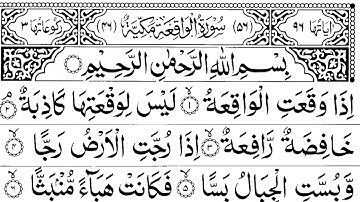 اٰيَاتُهَا ٩٦ (٥٦) سُوْرَةُ الْوَاقِعَةِ مَكِّيَّةٌ (٤٦) رُكُوْعَاتُهَا ٣
بِسْمِ اللهِ الرَّحْمٰنِ الرَّحِيْمِ
اِذَا وَقَعَتِ الْوَاقِعَةُ ۙ‏﴿١﴾ لَيْسَ لِوَقْعَتِهَا كَاذِبَةٌ ۘ‏﴿٢﴾
خَافِضَةٌ رَّافِعَةٌ ۙ‏﴿٣﴾ اِذَا رُجَّتِ الْاَرْضُ رَجًّا ۙ‏﴿٤﴾
وَّبُسَّتِ الْجِبَالُ بَسًّا ۙ‏﴿٥﴾ فَكَانَتْ هَبَآءً مُّنْۢبَثًّا ۙ‏﴿٦﴾